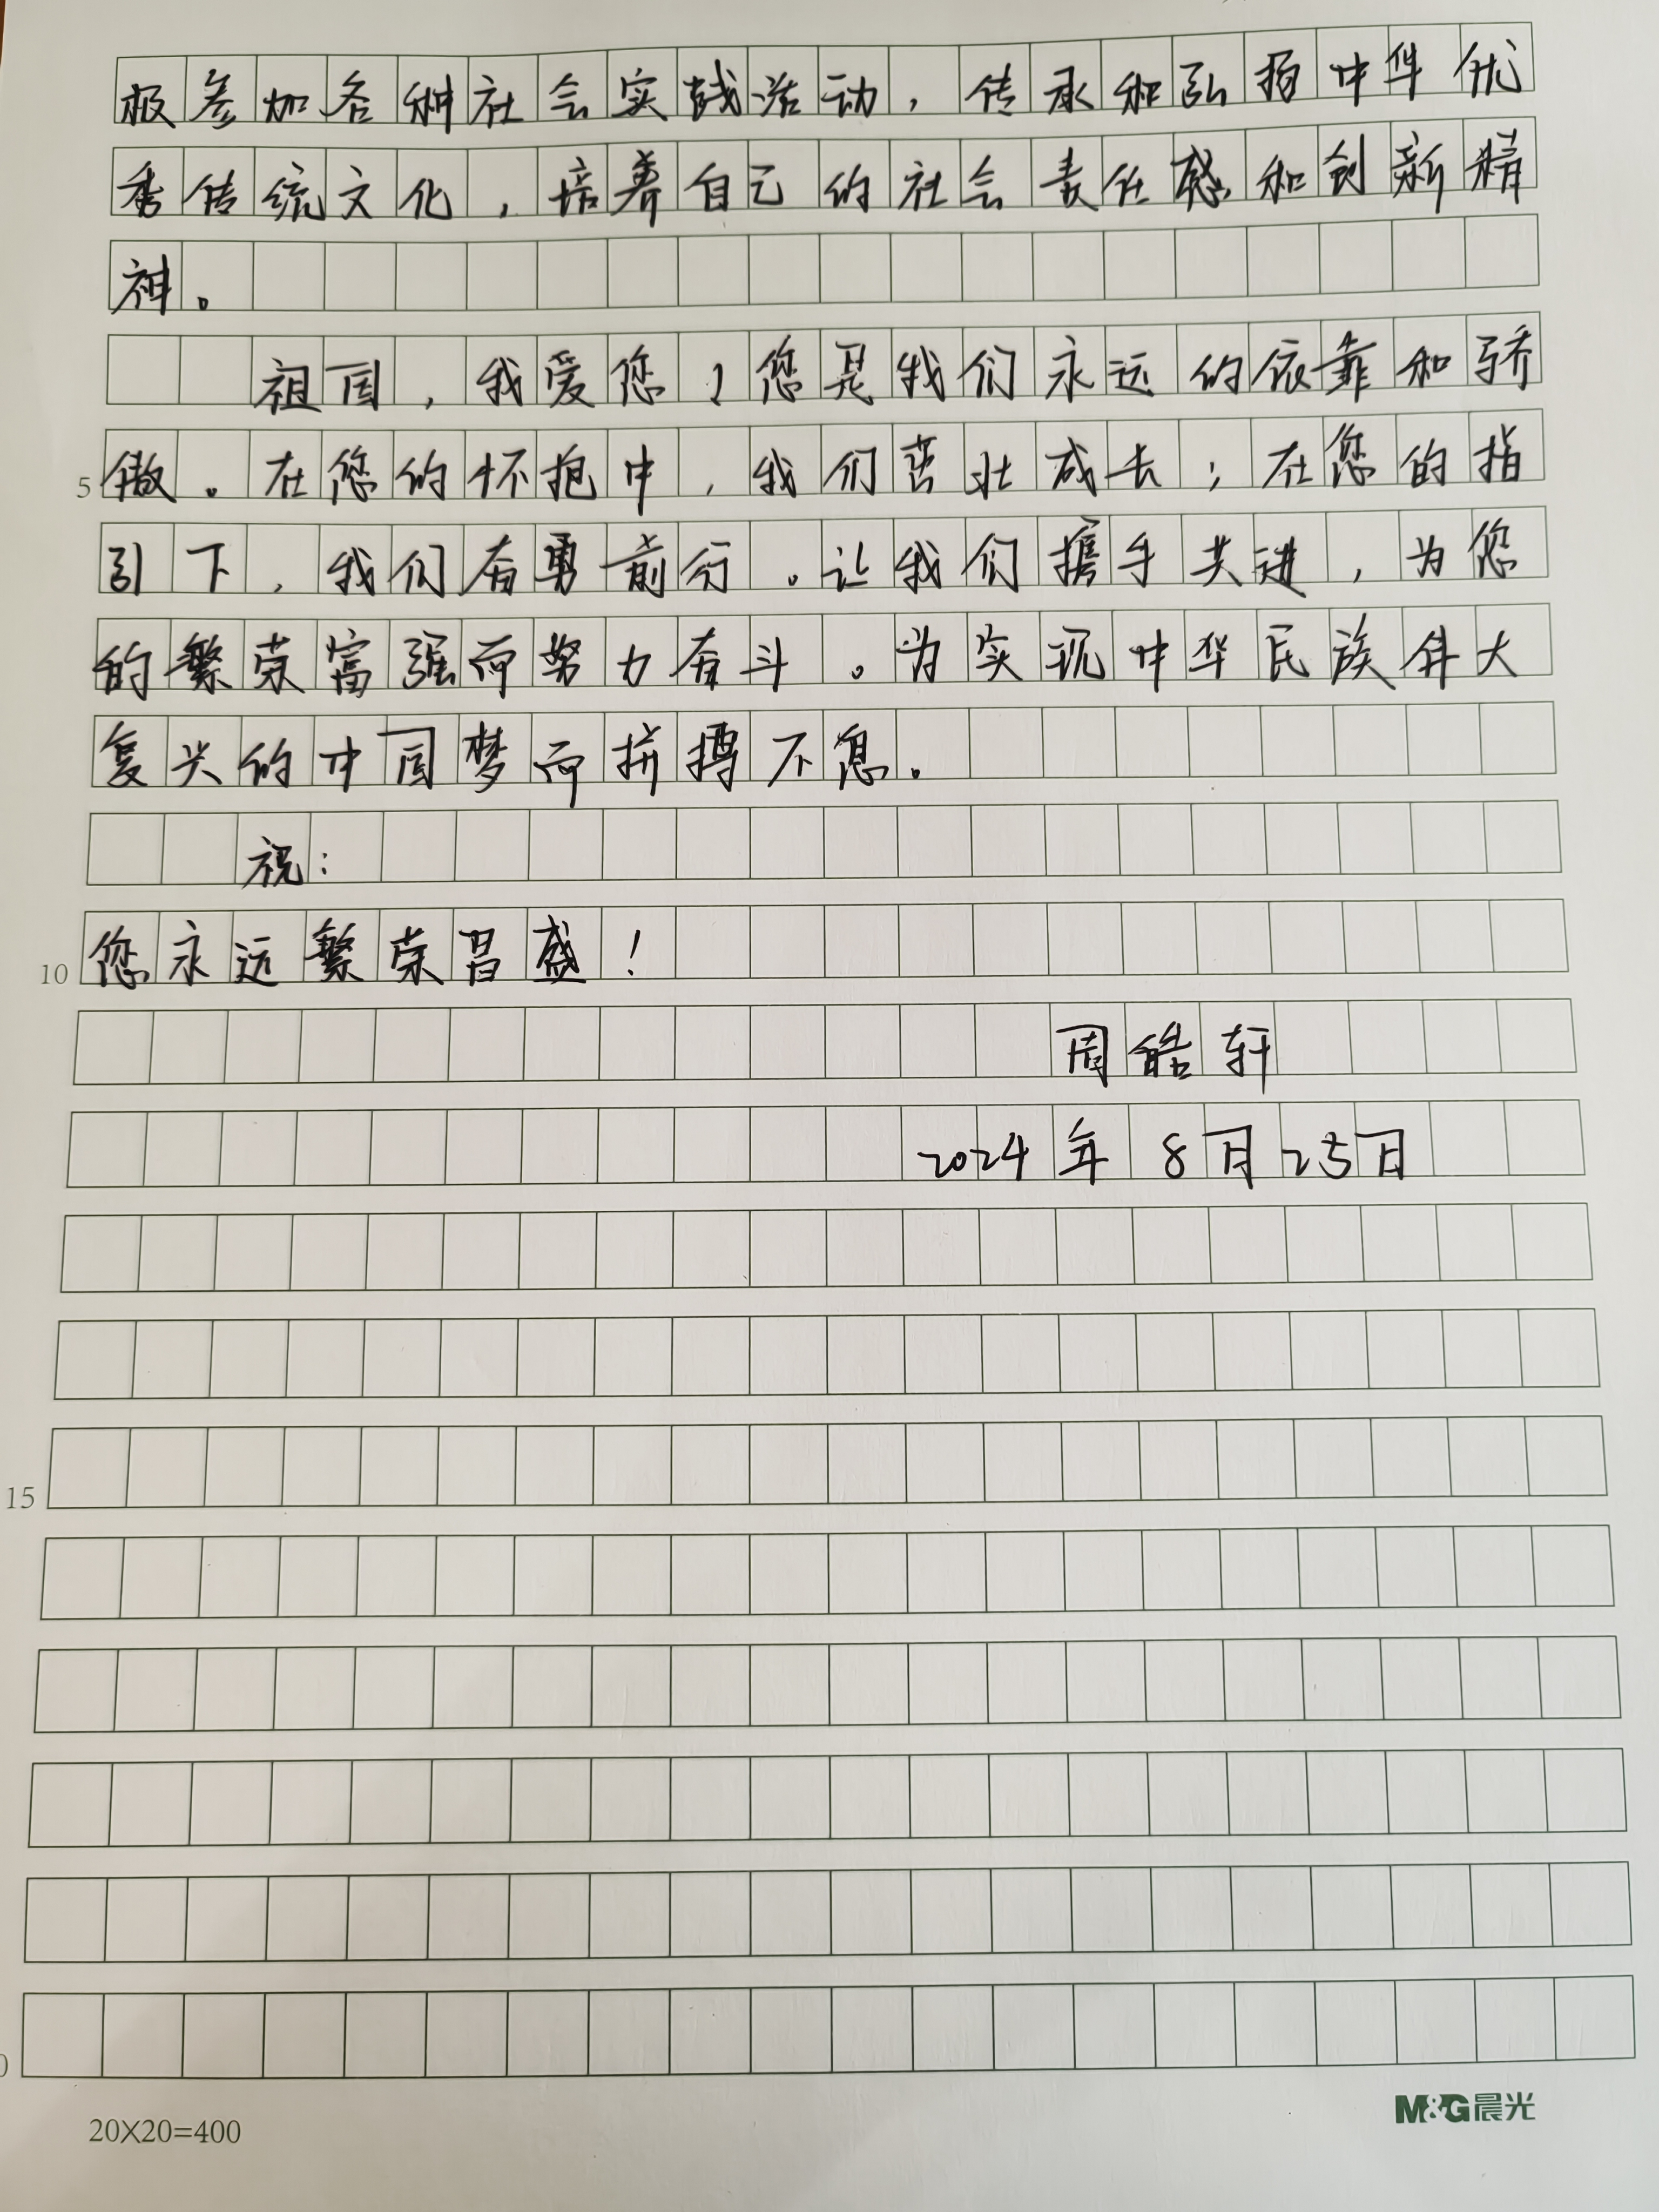 极参加各种社会实践活动，传承和弘扬中华优
秀传统文化，培养自己的社会责任感和创新精
神。
祖国，我爱您！您是我们永远的依靠和骄
5 傲。在您的怀抱中，我们茁壮成长；在您的指
引下，我们奋勇前行。让我们携手共进，为您
的繁荣富强而努力奋斗。为实现中华民族伟大
复兴的中国梦而拼搏不息。
祝：
10 您永远繁荣昌盛！
周皓轩
2024年8月25日
15
0
20X20=400
M&G晨光